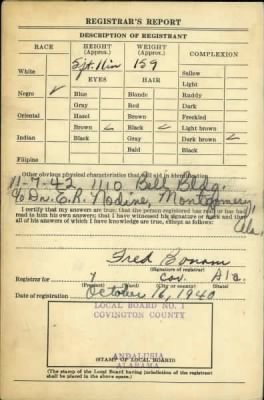 REGISTRAR'S REPORT
DESCRIPTION OF REGISTRANT
RACE HEIGHT (Approx.) WEIGHT (Approx.) COMPLEXION
5 ft. 11 in 159
White Sallow
EYES HAIR Light
Negro ✓ Blue Blonde Ruddy
Gray Red Dark
Oriental Hazel Brown Freckled
Brown ✓ Black ✓ Light brown
Indian Black Gray Dark brown ✓
Bald Black
Filipino
Other obvious physical characteristics that will aid in identification
11-7-42 1110 Bell Bldg.
c/o Dr. C. R. Nodine, Montgomery,
Ala.
I certify that my answers are true; that the person registered has read or has had read to him his own answers; that I have witnessed his signature or mark and that all of his answers of which I have knowledge are true, except as follows:
Fred Bonam
(Signature of registrar)
Registrar for 7 Cov. Ala.
(Precinct) (Ward) (City or county) (State)
Date of registration October 16, 1940
LOCAL BOARD NO. 1
COVINGTON COUNTY
ANDALUSIA
ALABAMA
(STAMP OF LOCAL BOARD)
(The stamp of the Local Board having jurisdiction of the registrant shall be placed in the above space.)